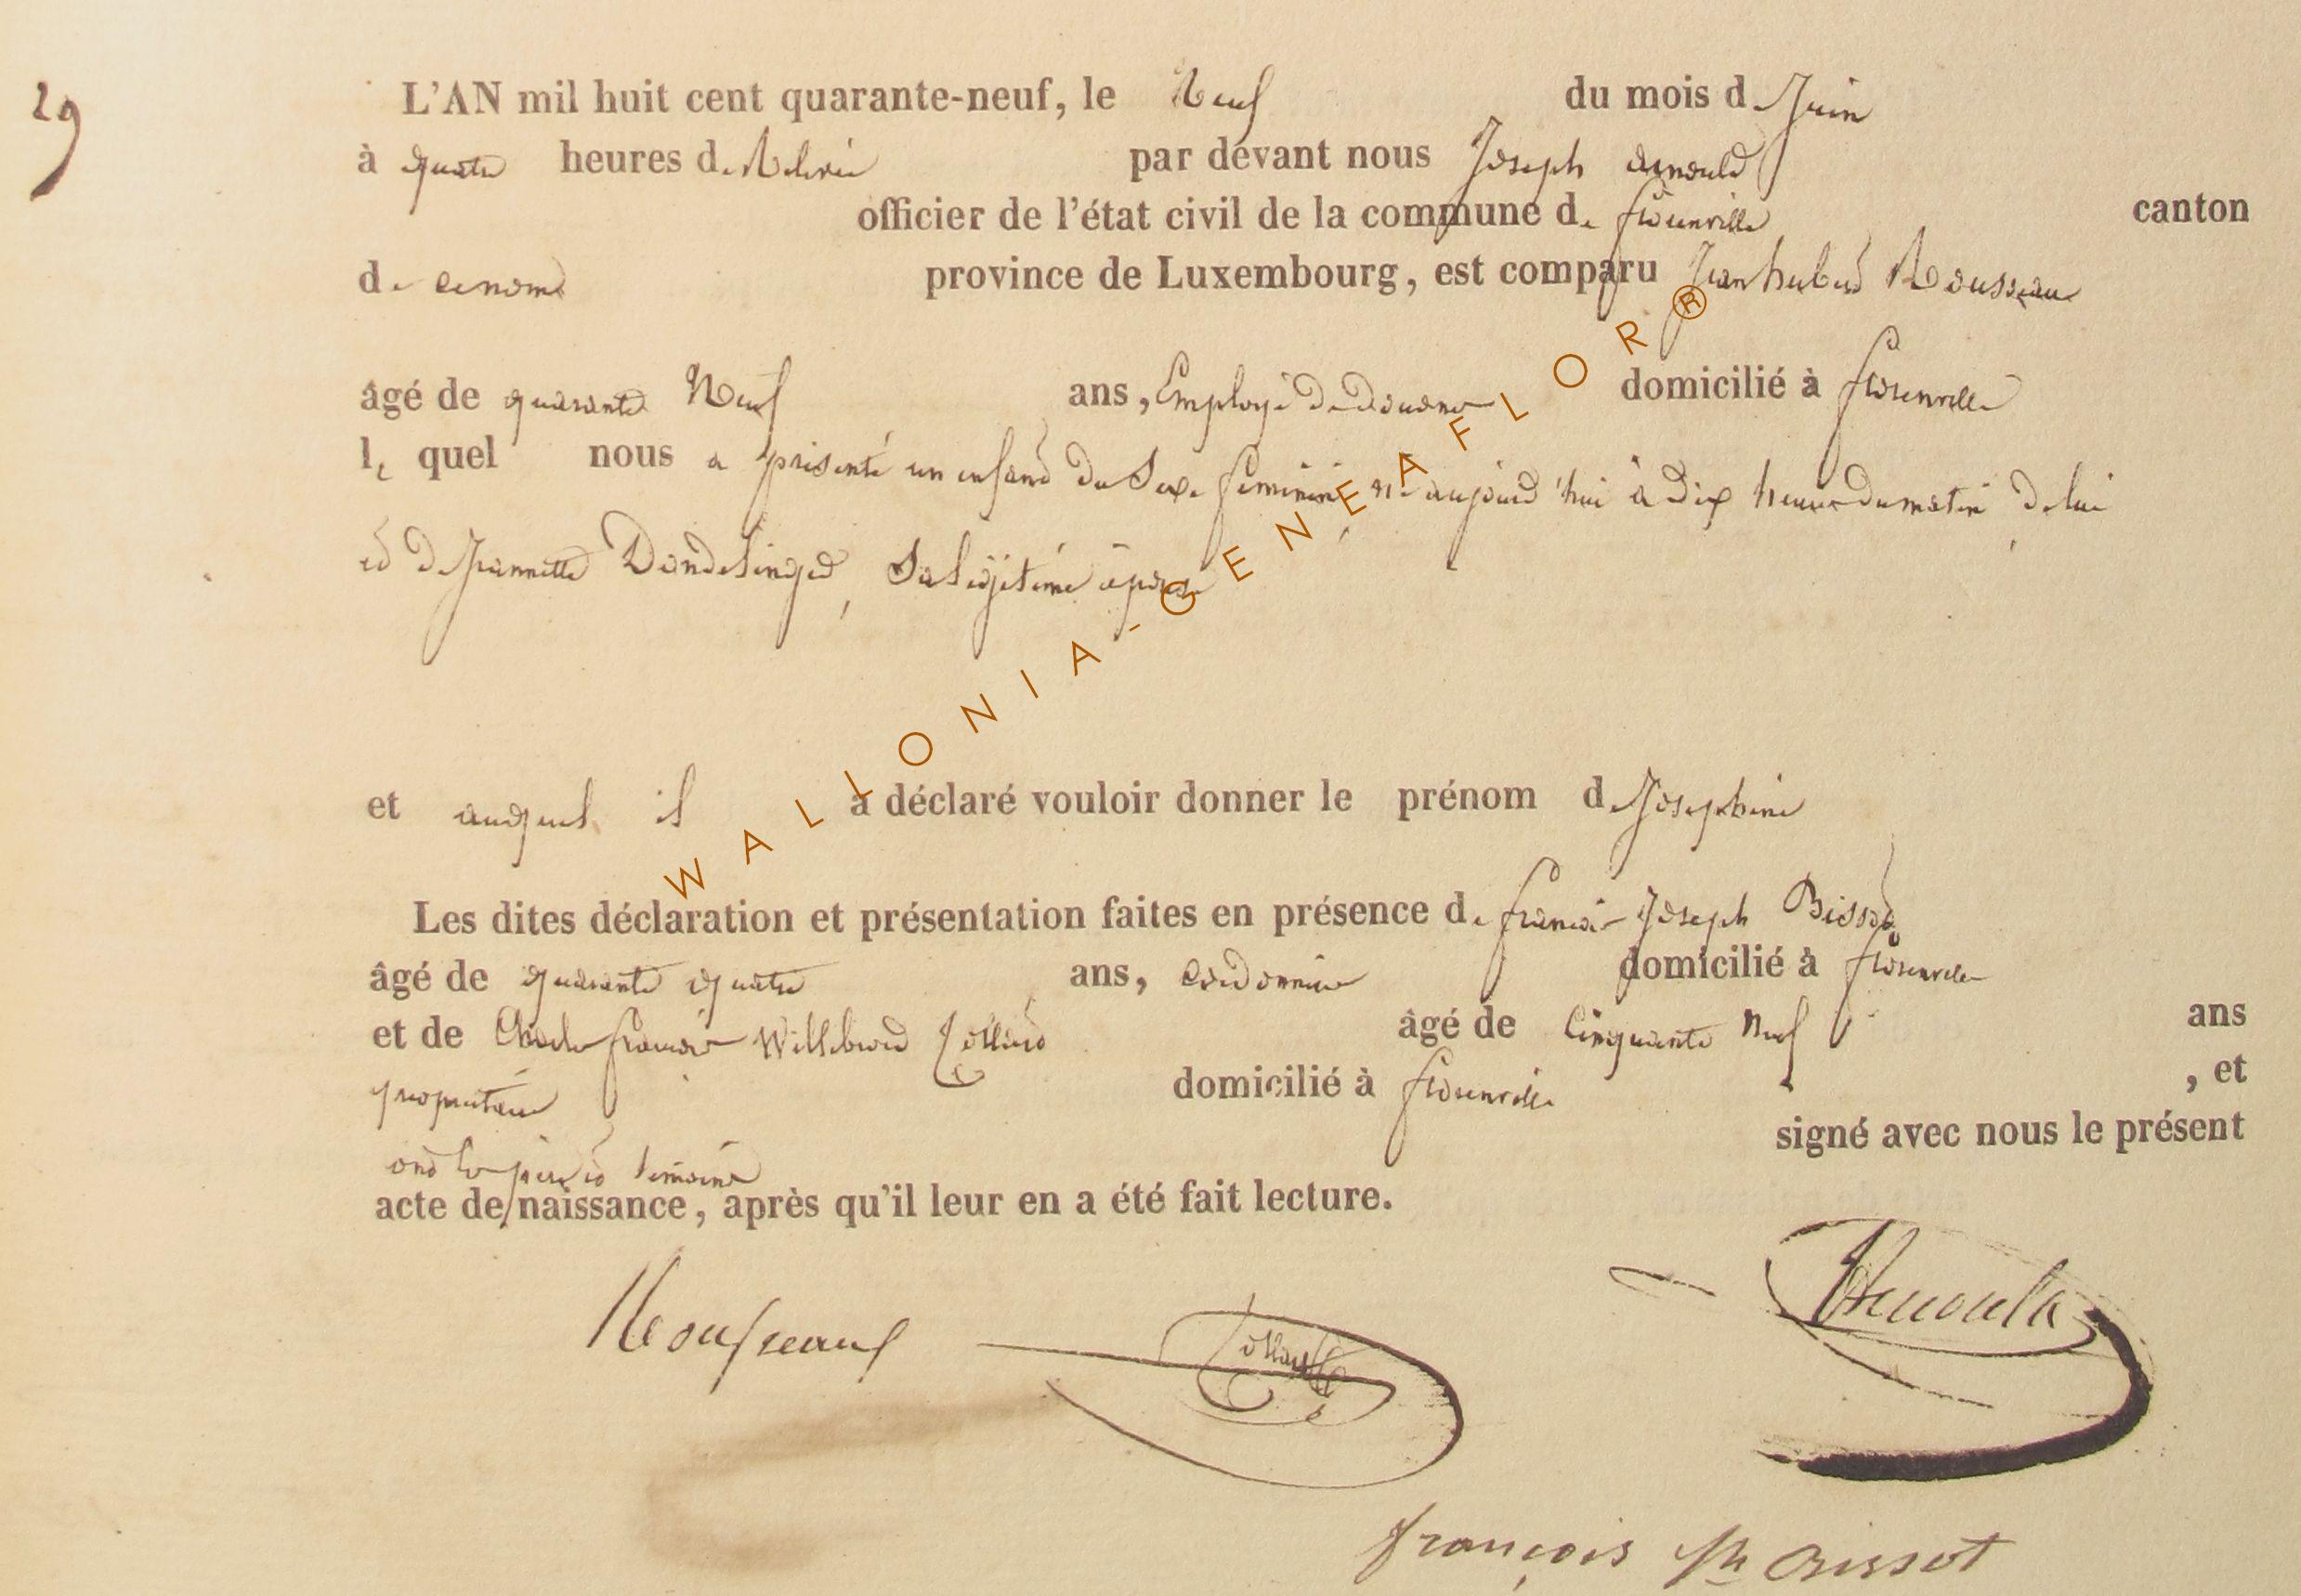 29
L'AN mil huit cent quarante-neuf, le Neuf du mois de Juin
à quatre heures de Relevée par devant nous Joseph arnould
officier de l'état civil de la commune de florenville canton
de ce nom province de Luxembourg, est comparu Jean hubert Rousseau
âgé de quarante Neuf ans, Employé de douane domicilié à florenville
le quel nous a présenté un enfant du Sexe féminin, né aujourd'hui à dix heures du matin, de lui
et de Jeannette Dondelinger, Sa légitime épouse
et auquel il a déclaré vouloir donner le prénom de Joséphine
Les dites déclaration et présentation faites en présence de françois Joseph Bissot
âgé de quarante quatre ans, cordonnier domicilié à florenville
et de Charles françois Willibrord Collard âgé de Cinquante Neuf ans
propriétaire domicilié à florenville , et
ont les père et témoins signé avec nous le présent
acte de naissance, après qu'il leur en a été fait lecture.
Rousseaux Collard Arnould
françois Jh Bissot
WALLONIA-GENEAFLOR®